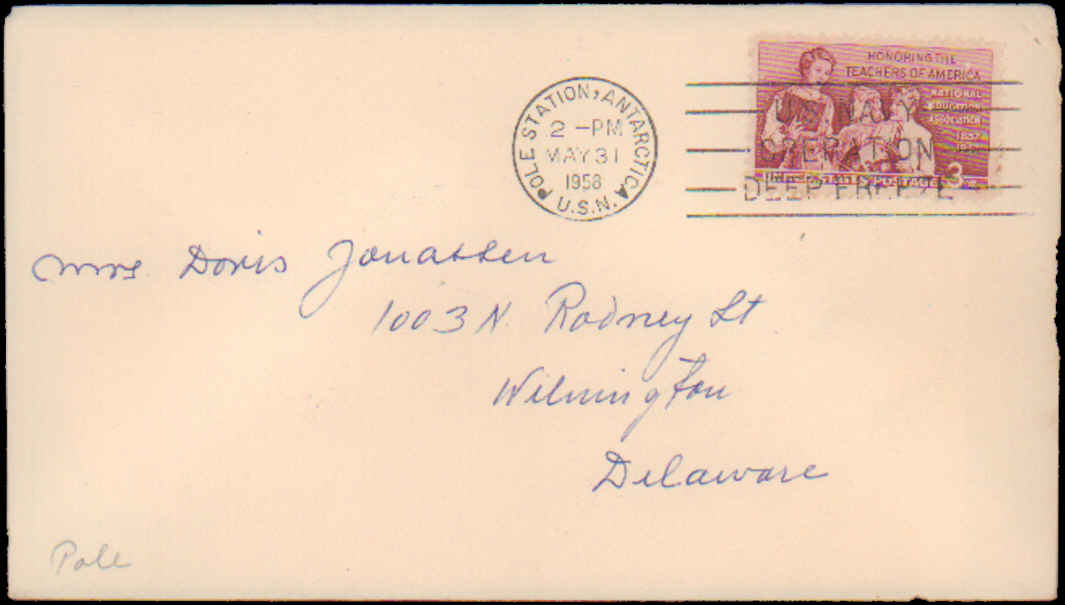 POLE STATION, ANTARCTICA
2 -PM
MAY 31
1958
U.S.N.
HONORING THE
TEACHERS OF AMERICA
NATIONAL
EDUCATION
ASSOCIATION
1857
U.S. NAVY
OPERATION
DEEP FREEZE
POSTAGE 3
Mrs. Doris Jonassen
1003 N. Rodney St
Wilmington
Delaware
Pole